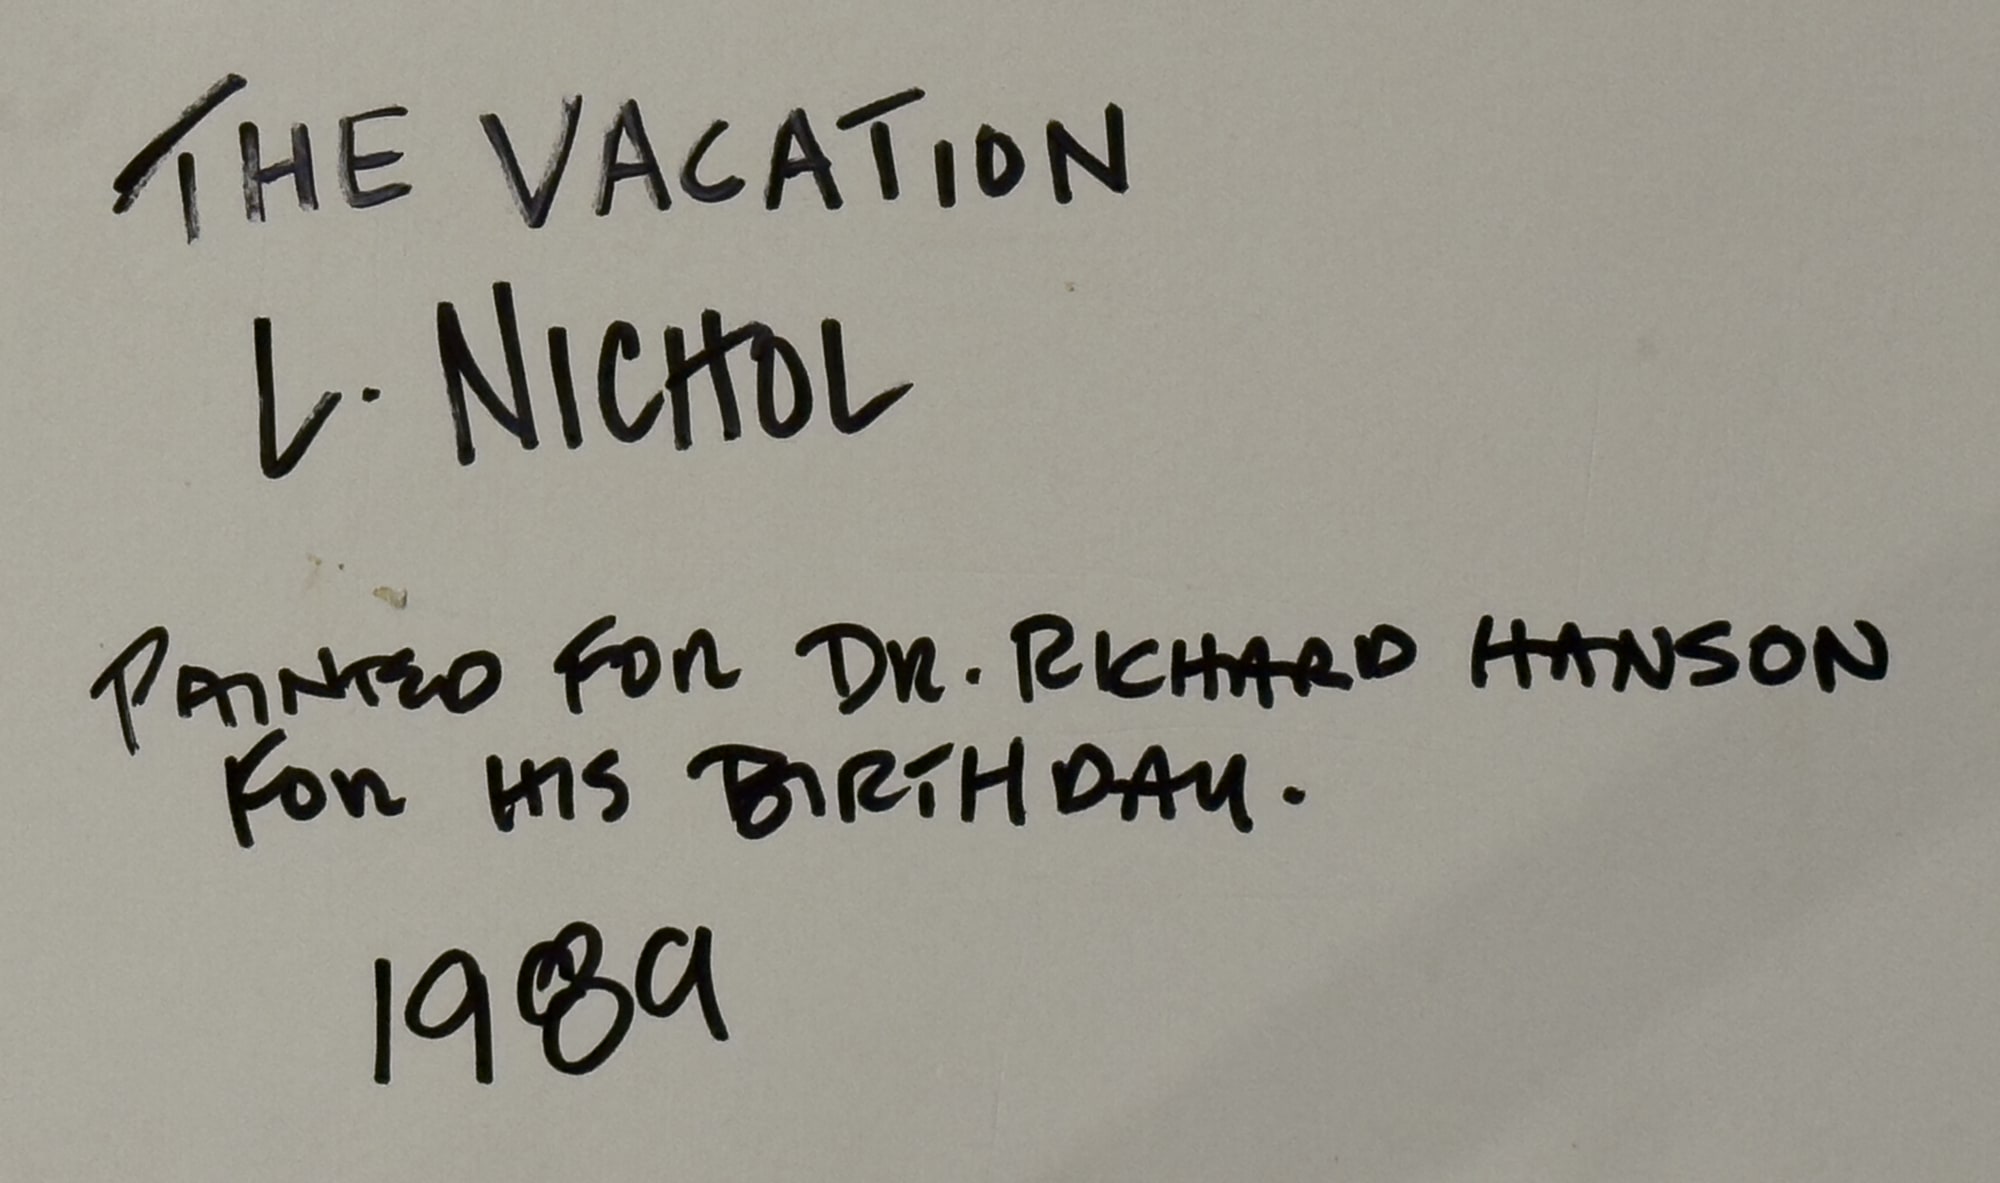 THE VACATION
L. NICHOL
PAINTED FOR DR. RICHARD HANSON
FOR HIS BIRTHDAY.
1989